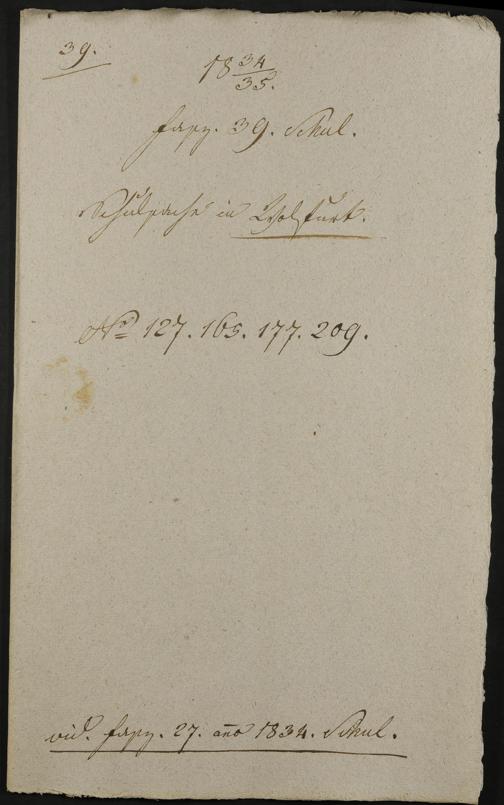 39.
18 34/35.
Fasz. 39. Schul.
Schulsache in Wolfurt.
No 127. 165. 177. 209.
vid. Fasz. 27. ano 1834. Schul.